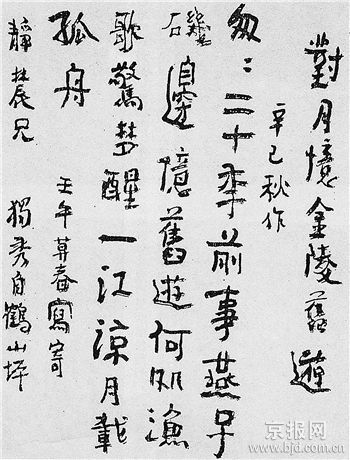 對月憶金陵舊遊
辛巳秋作
匆〻二十秊前事燕子
磯邊憶舊遊何処漁
歌驚梦醒一江涼月載
孤舟 壬午莫春寫寄
靜農兄 獨秀自鶴山坪
京报网
www.bjd.com.cn